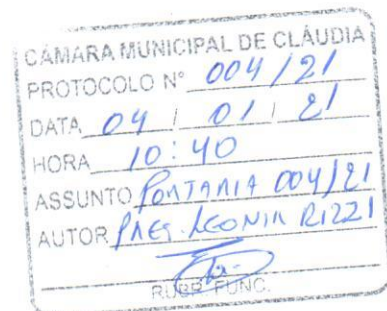 CÂMARA MUNICIPAL DE CLÁUDIA
PROTOCOLO Nº 004/21
DATA 04 / 01 / 21
HORA 10:40
ASSUNTO PORTARIA 004/21
AUTOR PRES. LEONIR RIZZI
RUBR. FUNC.